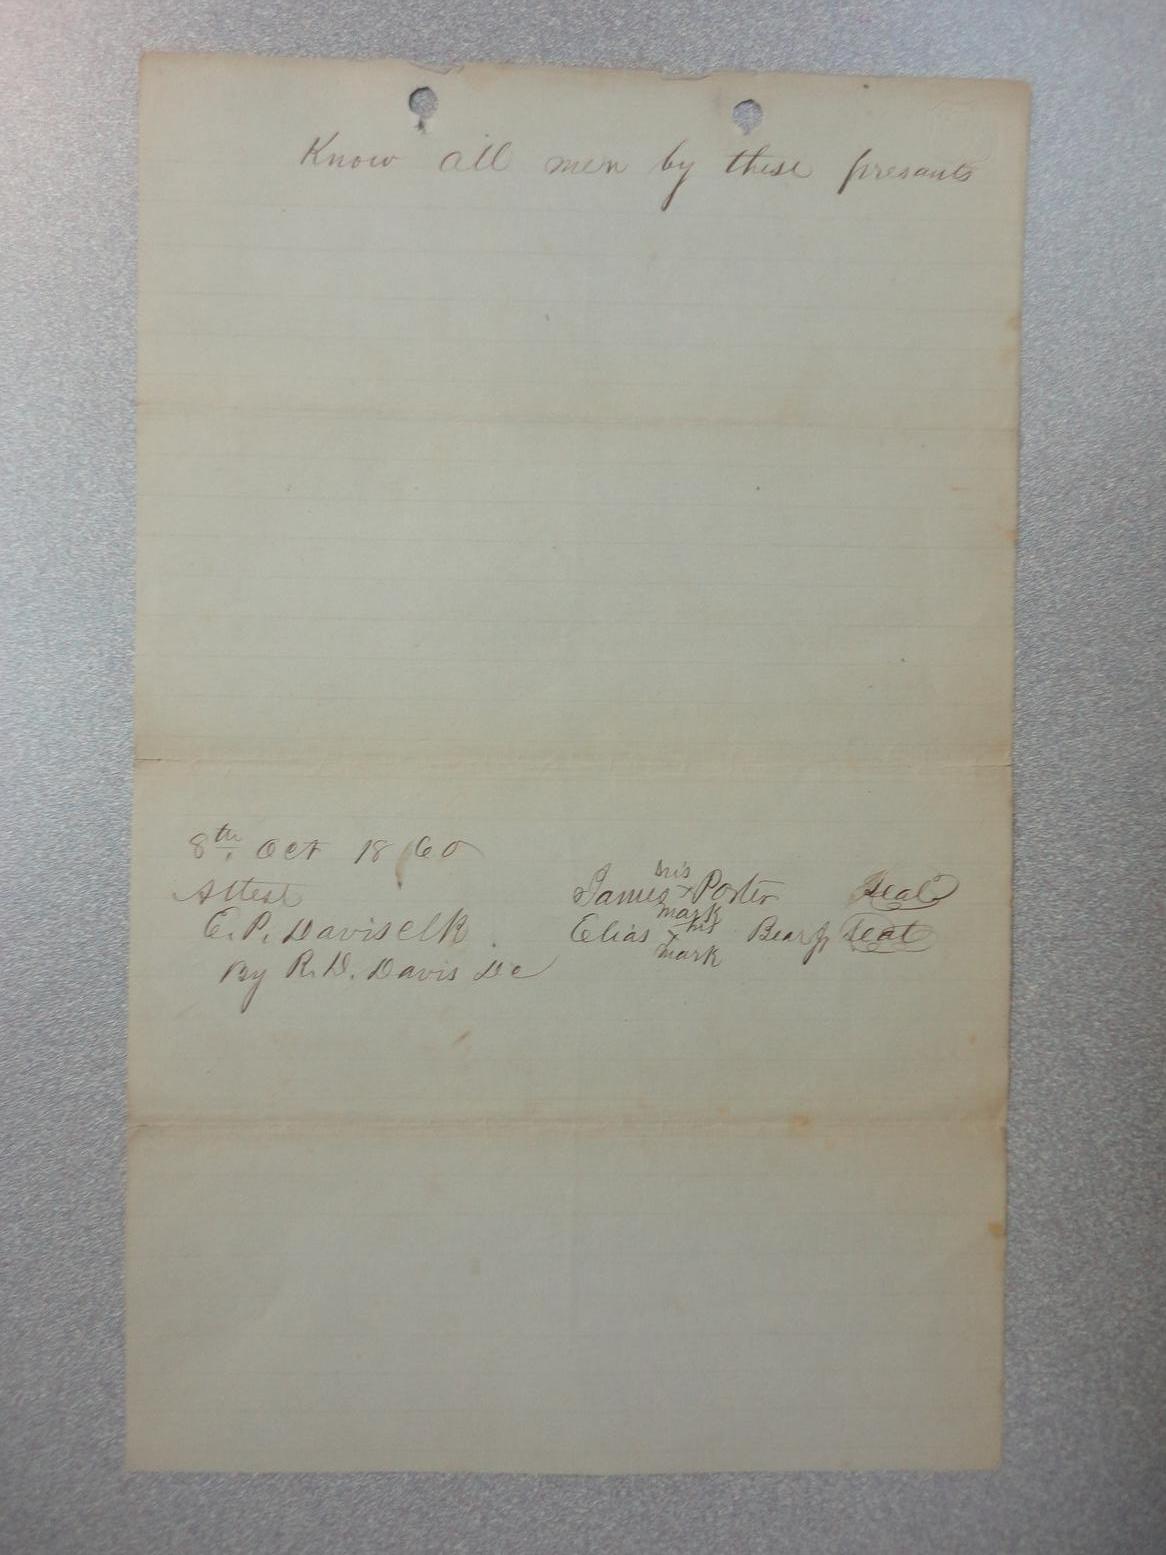 Know all men by these presants
8th. Oct 1860
Attest
E. P. Davis clk
By R. D. Davis Dc
his
James x Porter Seal
mark
his
Elias x Seal
mark